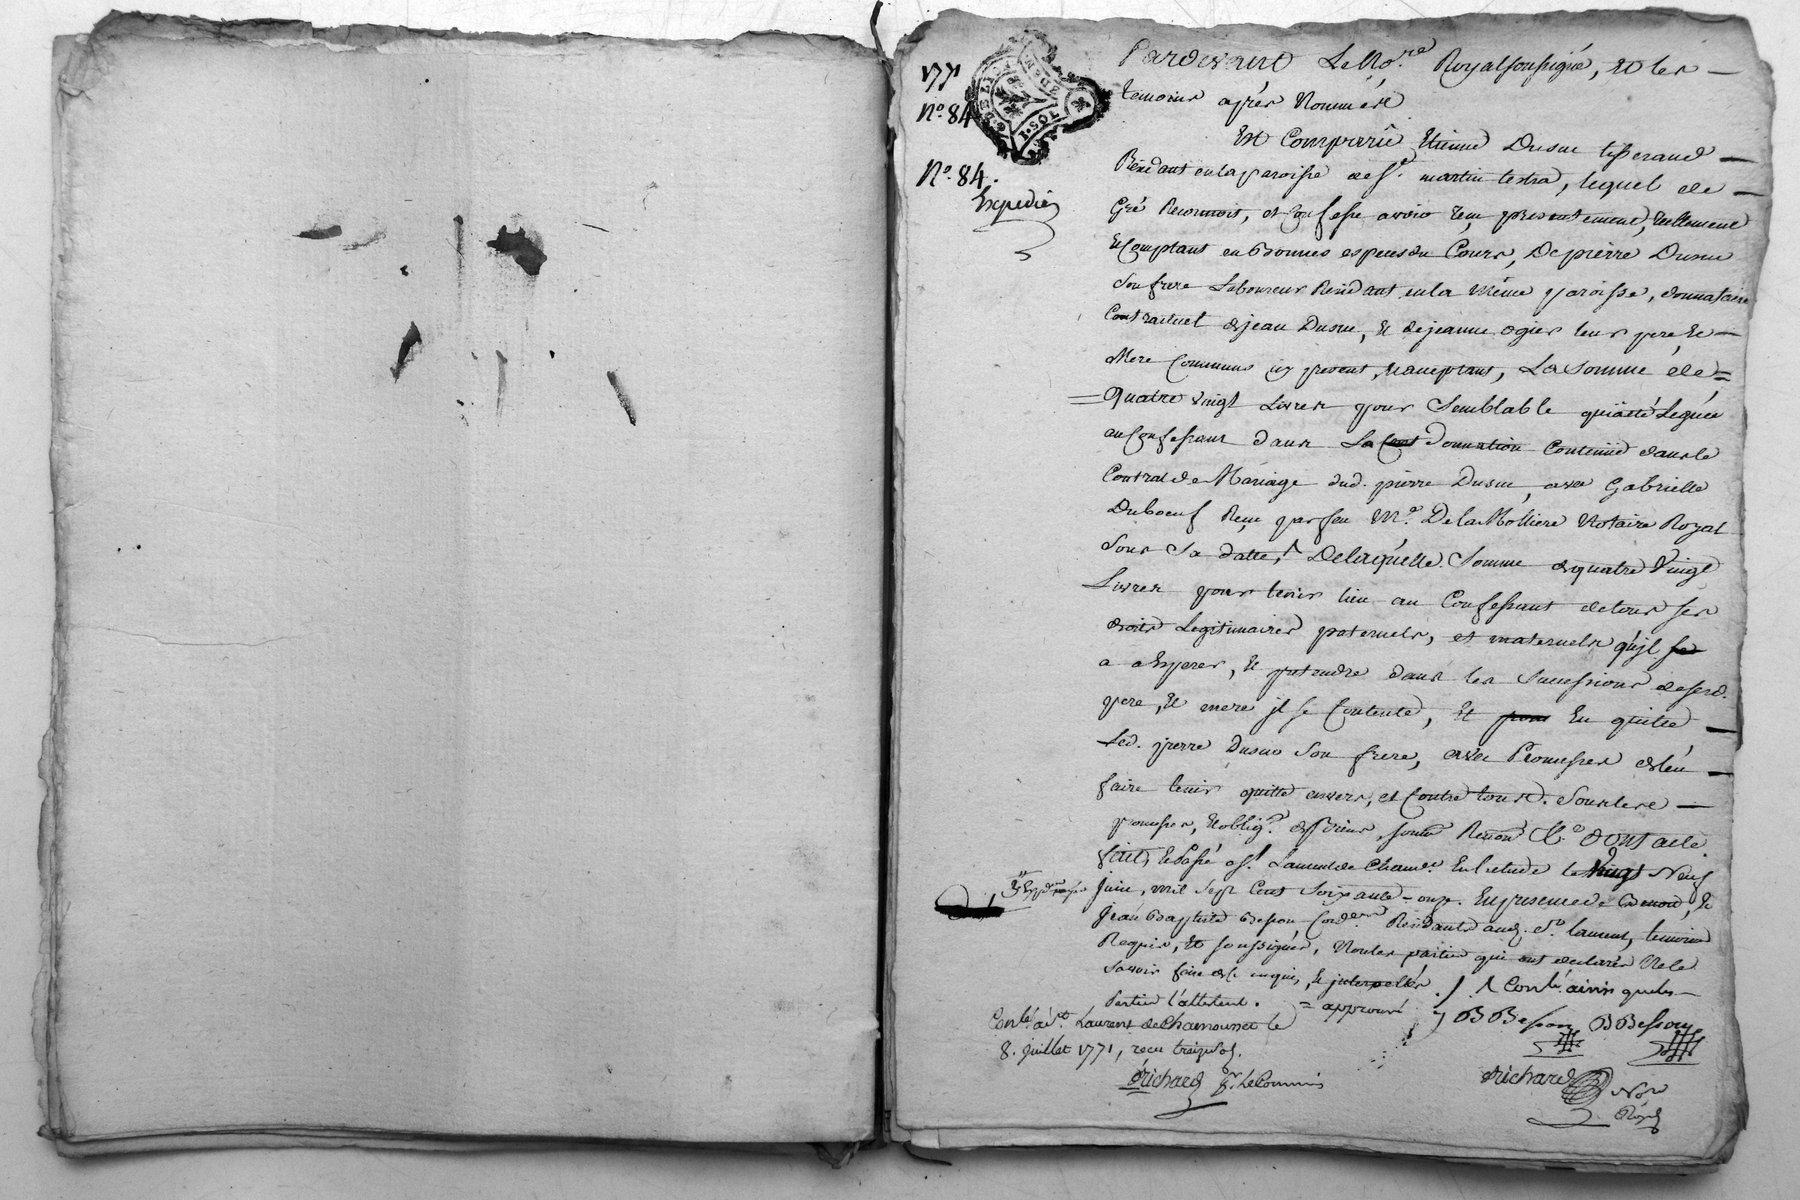 1771
No. 84
No. 84.
Expedié
I·SOL
Pardevant Le No.re Royal soussigné, Et les
temoins après Nommés
Est Comparu Etienne Dusuc tisserand
Résidant en la paroisse de st. martin lestra, lequel de
Gré Reconnoit, et Confesse avoir reçu presentement, reellement
Et Comptant en Bonnes especes du Cours, De pierre Dusuc
Son frere Laboureur Residant en la Même paroisse, donnataire
Contractuel de jean Dusuc, Et de jeanne ogier leur pere Et
Mere Communs icy present, Et aceptant, La Somme de
Quatre vingt Livres pour Semblable quantité Leguée
au Confessant dans La Donnation Contenüe dans le
Contrat de Mariage dud. pierre Dusuc, avec Gabrielle
Duboeuf Reçu par feu Me. De la Molliere Notaire Royal
Sous Sa datte, De laquelle Somme de quatre Vingt
Livres pour tenir lieu au Confessant de tous ses
droits Legitimaires paternels, et maternels qu'jl
a a Esperer, Et pretendre dans les Successions de sesd.
pere, Et mere jl se Contente, Et En quitte
Led. pierre dusuc Son frere, avec Promesses de l'en
faire tenir quitte envers, et Contre tous. Sous les
promesses, Et oblig.on de Biens, Renon. &.a dont acte
fait, Et Passé a St. Laurent de Cham.et En l'etude le Vingt Neuf
juin, mil Sept Cent Soixante-onze. En presence de Benoit, Et
Jean Baptiste Besson, Residants aud. St. laurent, temoins
Requis, Et soussignés, Non les parties qui ont declarés Ne le
Savoir faire de ce enquis, Et jnterpellés
Partie l'attestent. = approuvé
Conlé. a St. Laurent de Chamousset le
8. juillet 1771, recu treize Sols.
Drichard pr. Le Commis
B Besson B Besson
Drichard Nore
Royal